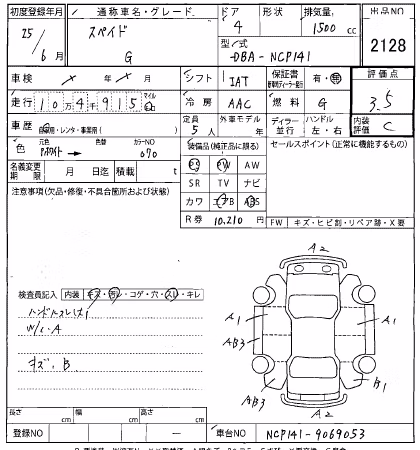 初度登録年月 通称車名・グレード ドア 形状 排気量 出品NO
25/6月 スペイド G 4 1500cc 2128
型式 DBA-NCP141
車検 × 年 × 月 シフト IAT 保証書 有・無 評価点
走行 10万4千915 マイル Km 冷房 AAC 燃料 G 3.5
車歴 自家用・レンタ・事業用( ) 定員 5人 外車モデル 年 ディーラー 並行 ハンドル 左・右 内装評価 C
色 元色 Pホワイト 色替 カラーNO 070 装備品(純正品に限る) セールスポイント(正常に機能するもの)
PS PW AW
名義変更期限 月 日迄 積載 t SR TV ナビ
注意事項(欠品・修復・不具合箇所および状態) カワ エアB ABS
R券 10,210円 FW キズ・ヒビ割・リペア跡・X要
A2
検査員記入 内装 キズ・汚レ・コゲ・穴・スレ・キレ
ハンドルスレ
W/C・A
キズ・B
A1 A1
AB3 AB3
B1
A2
長さ cm 幅 cm 高さ cm
登録NO ー 車台NO NCP141-9069053